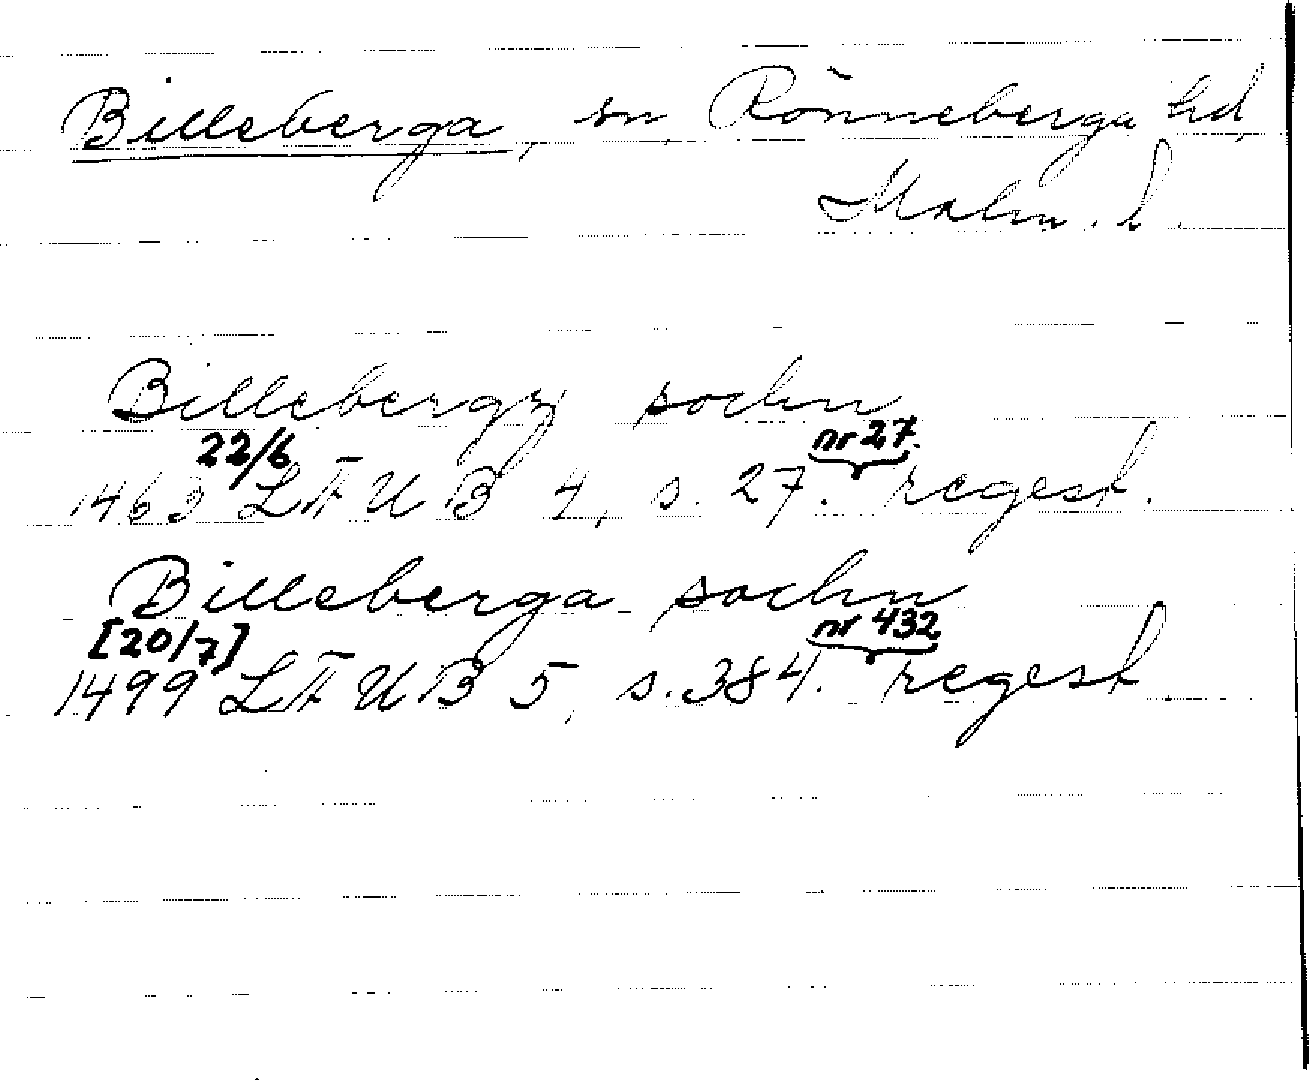 Billeberga, sn, Rönneberga hd,
Malm. l.
Billebergz sochn
22/6 nr 27.
1463 LÄUB 4, s. 27. regest.
Billeberga sochn
[20/7] nr 432
1499 LÄUB 5, s. 384. regest.